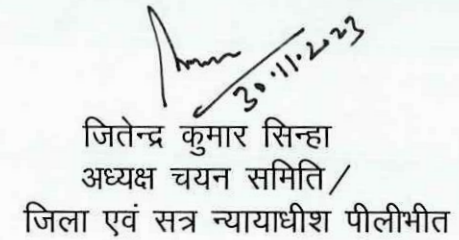 30.11.2023
जितेन्द्र कुमार सिन्हा
अध्यक्ष चयन समिति/
जिला एवं सत्र न्यायाधीश पीलीभीत